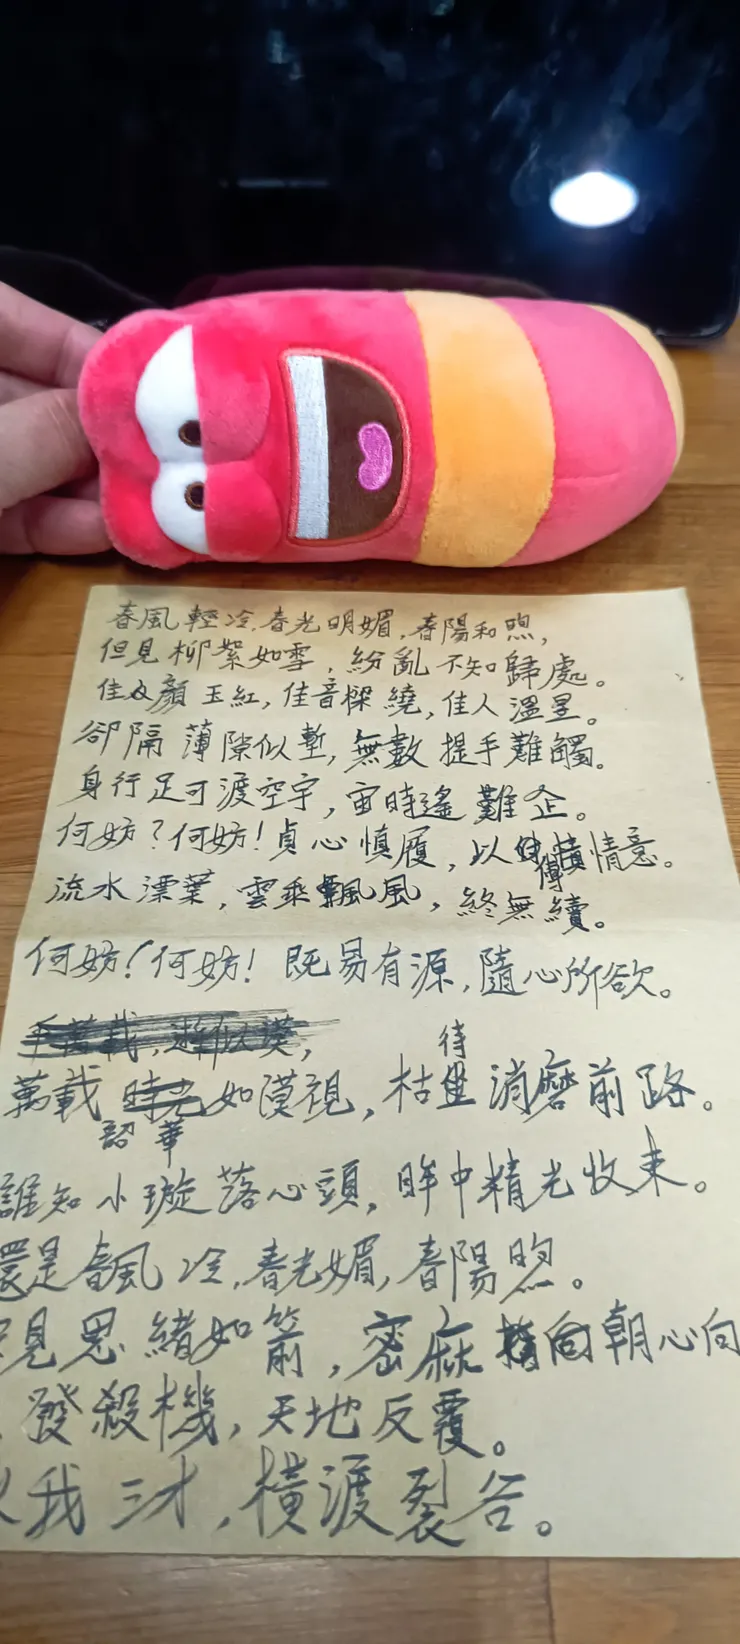 春風輕冷,春光明媚,春陽和煦,
但見柳絮如雪,紛亂不知歸處。
佳顏玉紅,佳音樑繞,佳人溫昱。
卻隔薄隙似塹,無數提手難觸。
身行足可渡空宇,宙時遙難企。
何妨?何妨!貞心慎履,以傳情意。
流水漂葉,雲乘飄風,終無續。
何妨!何妨!既易有源,隨心所欲。
萬載韶華如漠視,枯待消磨前路。
誰知小璇落心頭,眸中精光收束。
還是春風冷,春光媚,春陽煦。
見思緒如箭,密麻指向朝心向
發殺機,天地反覆。
我三才,橫渡裂谷。